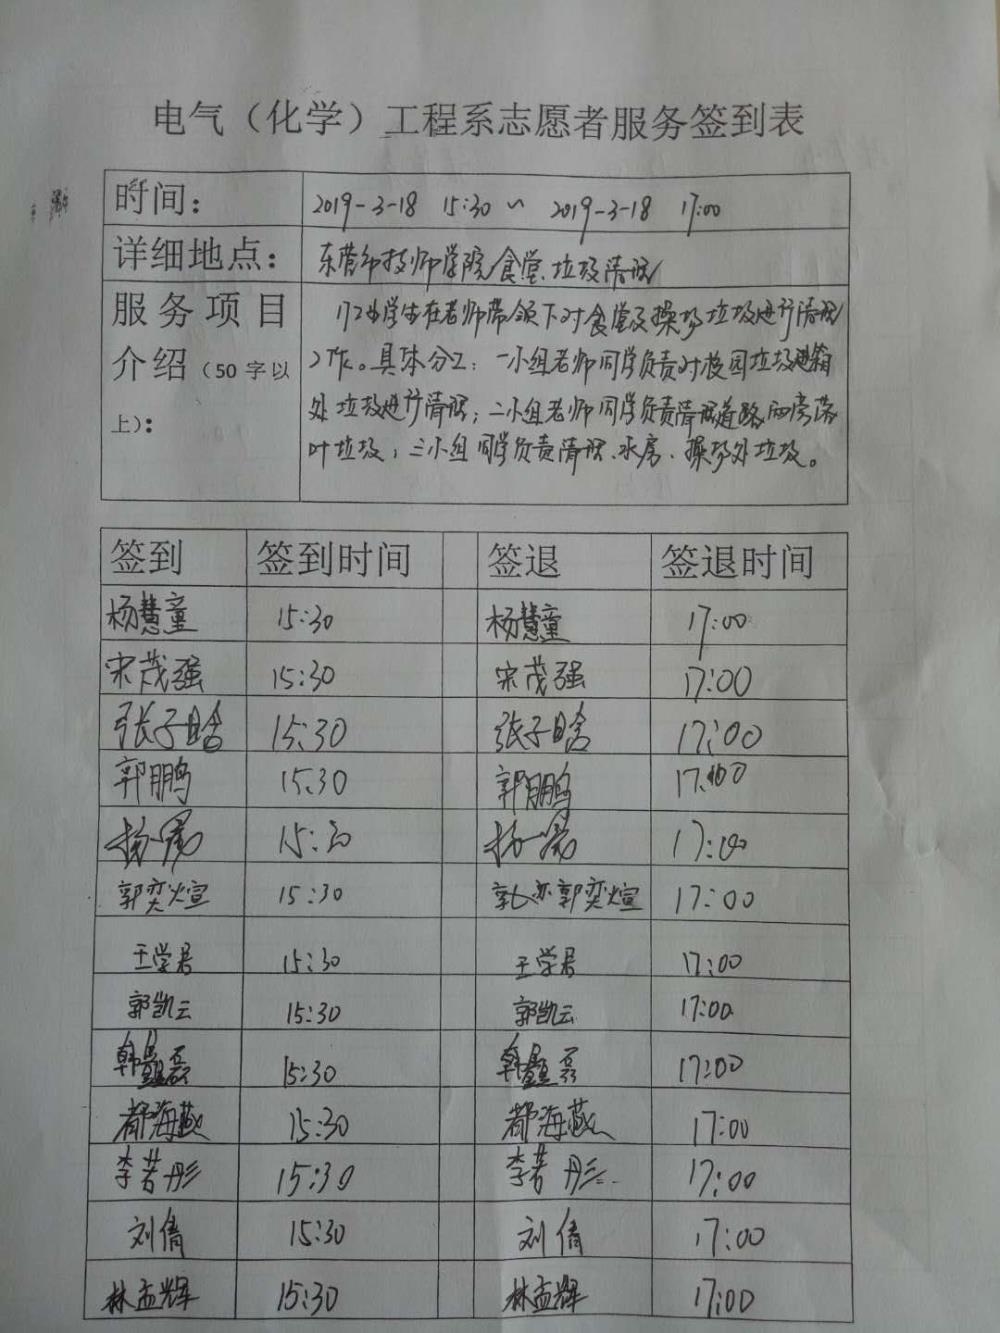 电气（化学）工程系志愿者服务签到表
时间： 2019-3-18 15:30 ~ 2019-3-18 17:00
详细地点： 东营市技师学院食堂垃圾清理
服务项目 172名学生在老师带领下对食堂及操场垃圾进行清理
介绍（50字以 工作。具体分工：一小组老师同学负责对校园垃圾箱
上）： 处垃圾进行清理；二小组老师同学负责清理道路两旁落
叶垃圾；三小组同学负责清理、水房、操场处垃圾。
签到 签到时间 签退 签退时间
杨慧童 15:30 杨慧童 17:00
宋茂强 15:30 宋茂强 17:00
张子晗 15:30 张子晗 17:00
郭鹏 15:30 郭鹏 17:00
杨 15:30 杨 17:00
郭奕煊 15:30 郭奕煊 17:00
王学君 15:30 王学君 17:00
郭凯云 15:30 郭凯云 17:00
韩 磊 15:30 韩 磊 17:00
都海 15:30 都海 17:00
李若彤 15:30 李若彤 17:00
刘倩 15:30 刘倩 17:00
林孟辉 15:30 林孟辉 17:00